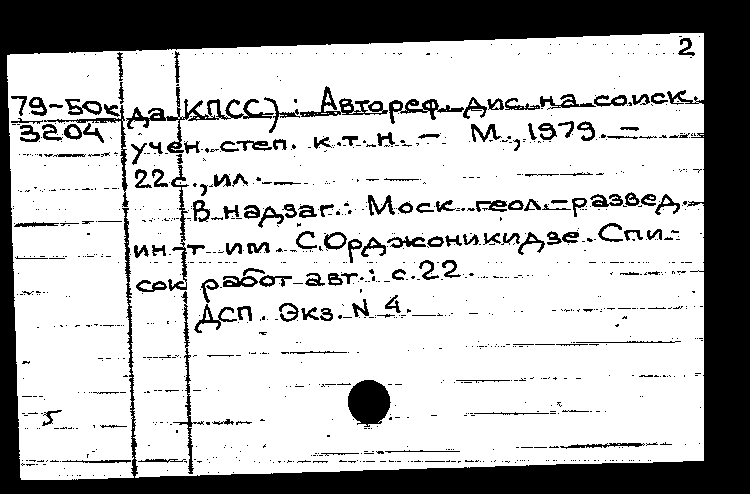 2
79-50к да КПСС) : Автореф. дис. на соиск.
3204
учен. степ. к.т.н. - М., 1979. -
22с., ил.
В надзаг.: Моск. геол.-развед.
ин-т им. С.Орджоникидзе. Спи-
сок работ авт.: с.22.
ДСП. Экз. N 4.
5